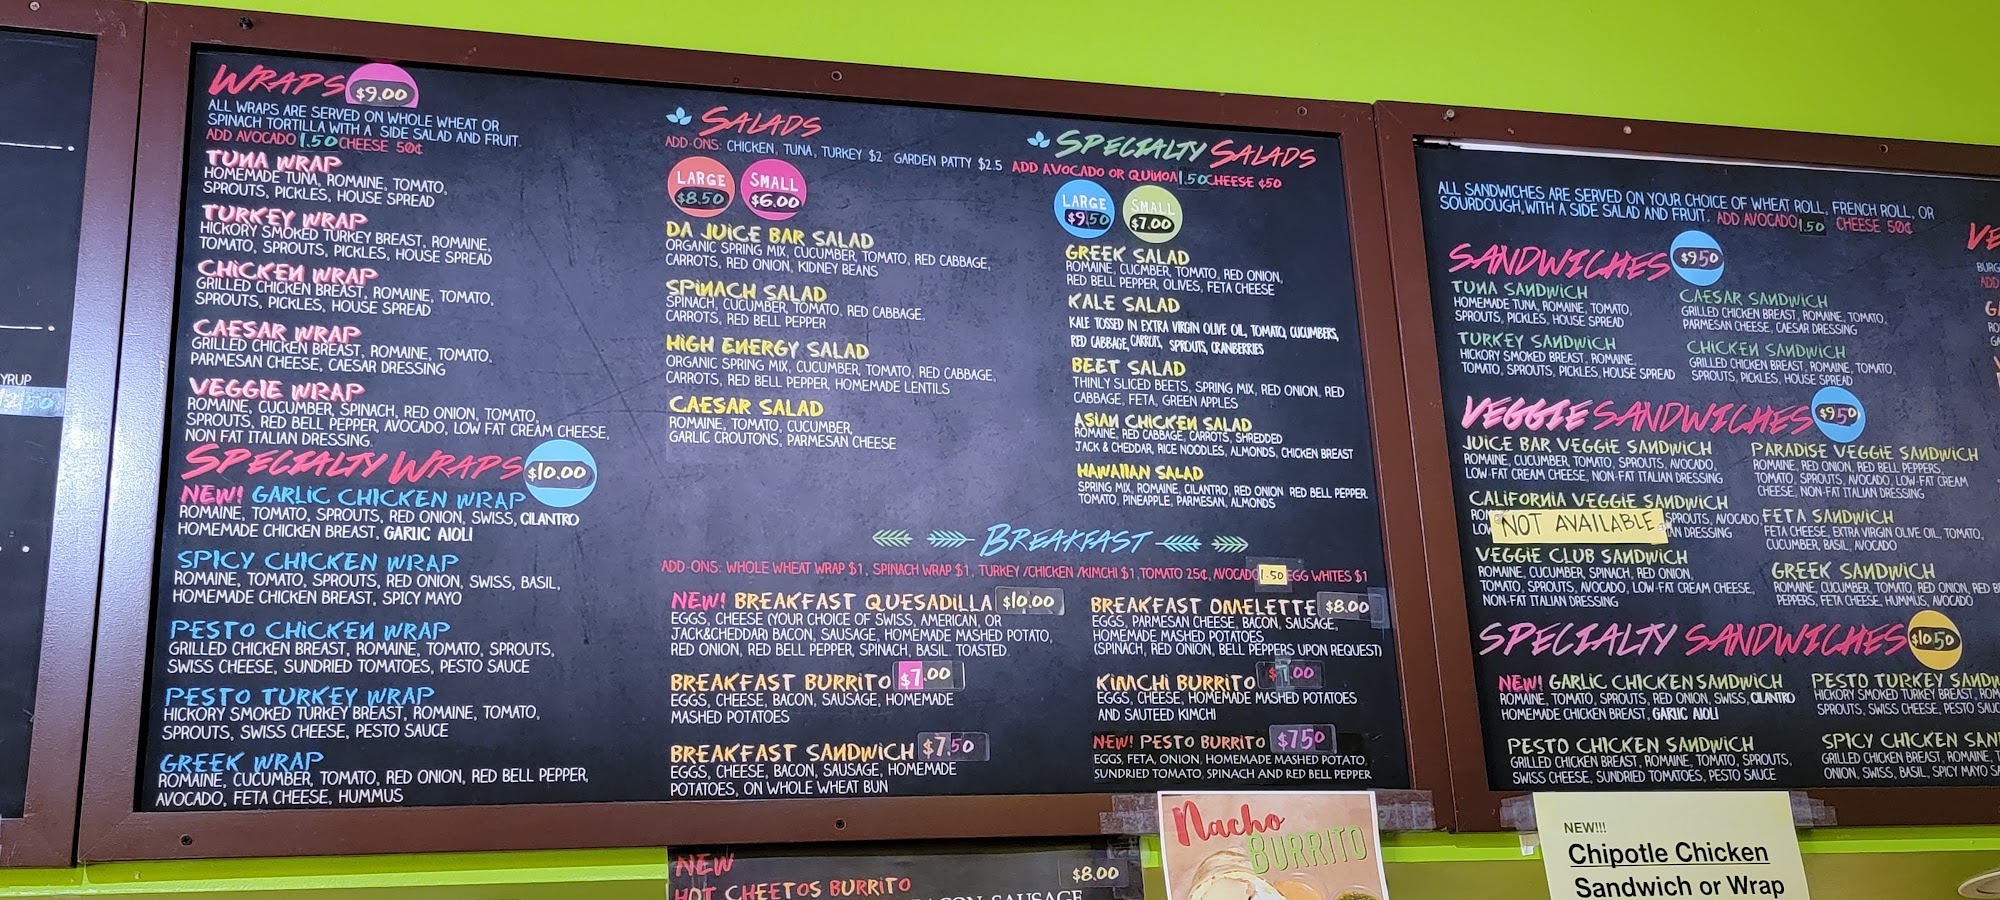 YRUP
WRAPS $9.00
ALL WRAPS ARE SERVED ON WHOLE WHEAT OR
SPINACH TORTILLA WITH A SIDE SALAD AND FRUIT.
ADD AVOCADO 1.50 CHEESE 50¢
TUNA WRAP
HOMEMADE TUNA, ROMAINE, TOMATO,
SPROUTS, PICKLES, HOUSE SPREAD
TURKEY WRAP
HICKORY SMOKED TURKEY BREAST, ROMAINE,
TOMATO, SPROUTS, PICKLES, HOUSE SPREAD
CHICKEN WRAP
GRILLED CHICKEN BREAST, ROMAINE, TOMATO,
SPROUTS, PICKLES, HOUSE SPREAD
CAESAR WRAP
GRILLED CHICKEN BREAST, ROMAINE, TOMATO,
PARMESAN CHEESE, CAESAR DRESSING
VEGGIE WRAP
ROMAINE, CUCUMBER, SPINACH, RED ONION, TOMATO,
SPROUTS, RED BELL PEPPER, AVOCADO, LOW FAT CREAM CHEESE,
NON FAT ITALIAN DRESSING.
SPECIALTY WRAPS $10.00
NEW! GARLIC CHICKEN WRAP
ROMAINE, TOMATO, SPROUTS, RED ONION, SWISS, CILANTRO
HOMEMADE CHICKEN BREAST, GARLIC AIOLI
SPICY CHICKEN WRAP
ROMAINE, TOMATO, SPROUTS, RED ONION, SWISS, BASIL,
HOMEMADE CHICKEN BREAST, SPICY MAYO
PESTO CHICKEN WRAP
GRILLED CHICKEN BREAST, ROMAINE, TOMATO, SPROUTS,
SWISS CHEESE, SUNDRIED TOMATOES, PESTO SAUCE
PESTO TURKEY WRAP
HICKORY SMOKED TURKEY BREAST, ROMAINE, TOMATO,
SPROUTS, SWISS CHEESE, PESTO SAUCE
GREEK WRAP
ROMAINE, CUCUMBER, TOMATO, RED ONION, RED BELL PEPPER,
AVOCADO, FETA CHEESE, HUMMUS
SALADS
ADD-ONS: CHICKEN, TUNA, TURKEY $2 GARDEN PATTY $2.5
LARGE $8.50 SMALL $6.00
DA JUICE BAR SALAD
ORGANIC SPRING MIX, CUCUMBER, TOMATO, RED CABBAGE,
CARROTS, RED ONION, KIDNEY BEANS
SPINACH SALAD
SPINACH, CUCUMBER, TOMATO, RED CABBAGE,
CARROTS, RED BELL PEPPER
HIGH ENERGY SALAD
ORGANIC SPRING MIX, CUCUMBER, TOMATO, RED CABBAGE,
CARROTS, RED BELL PEPPER, HOMEMADE LENTILS
CAESAR SALAD
ROMAINE, TOMATO, CUCUMBER,
GARLIC CROUTONS, PARMESAN CHEESE
SPECIALTY SALADS
ADD AVOCADO OR QUINOA 1.50 CHEESE $50
LARGE $9.50 SMALL $7.00
GREEK SALAD
ROMAINE, CUCMBER, TOMATO, RED ONION,
RED BELL PEPPER, OLIVES, FETA CHEESE
KALE SALAD
KALE TOSSED IN EXTRA VIRGIN OLIVE OIL, TOMATO, CUCUMBERS,
RED CABBAGE, CARROTS, SPROUTS, CRANBERRIES
BEET SALAD
THINLY SLICED BEETS, SPRING MIX, RED ONION, RED
CABBAGE, FETA, GREEN APPLES
ASIAN CHICKEN SALAD
ROMAINE, RED CABBAGE, CARROTS, SHREDDED
JACK & CHEDDAR, RICE NOODLES, ALMONDS, CHICKEN BREAST
HAWAIIAN SALAD
SPRING MIX, ROMAINE, CILANTRO, RED ONION RED BELL PEPPER,
TOMATO, PINEAPPLE, PARMESAN, ALMONDS
BREAKFAST
ADD-ONS: WHOLE WHEAT WRAP $1, SPINACH WRAP $1, TURKEY /CHICKEN /KIMCHI $1, TOMATO 25¢, AVOCADO 1.50 EGG WHITES $1
NEW! BREAKFAST QUESADILLA $10.00
EGGS, CHEESE (YOUR CHOICE OF SWISS, AMERICAN, OR
JACK&CHEDDAR) BACON, SAUSAGE, HOMEMADE MASHED POTATO,
RED ONION, RED BELL PEPPER, SPINACH, BASIL. TOASTED.
BREAKFAST BURRITO $7.00
EGGS, CHEESE, BACON, SAUSAGE, HOMEMADE
MASHED POTATOES
BREAKFAST SANDWICH $7.50
EGGS, CHEESE, BACON, SAUSAGE, HOMEMADE
POTATOES, ON WHOLE WHEAT BUN
BREAKFAST OMELETTE $8.00
EGGS, PARMESAN CHEESE, BACON, SAUSAGE,
HOMEMADE MASHED POTATOES
(SPINACH, RED ONION, BELL PEPPERS UPON REQUEST)
KIMCHI BURRITO $7.00
EGGS, CHEESE, HOMEMADE MASHED POTATOES
AND SAUTEED KIMCHI
NEW! PESTO BURRITO $7.50
EGGS, FETA, ONION, HOMEMADE MASHED POTATO,
SUNDRIED TOMATO, SPINACH AND RED BELL PEPPER
NEW
HOT CHEETOS BURRITO $8.00
BACON, SAUSAGE
Nacho
BURRITO
ALL SANDWICHES ARE SERVED ON YOUR CHOICE OF WHEAT ROLL, FRENCH ROLL, OR
SOURDOUGH, WITH A SIDE SALAD AND FRUIT. ADD AVOCADO 1.50 CHEESE 50¢
SANDWICHES $9.50
TUNA SANDWICH
HOMEMADE TUNA, ROMAINE, TOMATO,
SPROUTS, PICKLES, HOUSE SPREAD
TURKEY SANDWICH
HICKORY SMOKED BREAST, ROMAINE,
TOMATO, SPROUTS, PICKLES, HOUSE SPREAD
CAESAR SANDWICH
GRILLED CHICKEN BREAST, ROMAINE, TOMATO,
PARMESAN CHEESE, CAESAR DRESSING
CHICKEN SANDWICH
GRILLED CHICKEN BREAST, ROMAINE, TOMATO,
SPROUTS, PICKLES, HOUSE SPREAD
VEGGIE SANDWICHES $9.50
JUICE BAR VEGGIE SANDWICH
ROMAINE, CUCUMBER, TOMATO, SPROUTS, AVOCADO,
LOW-FAT CREAM CHEESE, NON-FAT ITALIAN DRESSING
CALIFORNIA VEGGIE SANDWICH
NOT AVAILABLE
SPROUTS, AVOCADO,
DRESSING
VEGGIE CLUB SANDWICH
ROMAINE, CUCUMBER, SPINACH, RED ONION,
TOMATO, SPROUTS, AVOCADO, LOW-FAT CREAM CHEESE,
NON-FAT ITALIAN DRESSING
PARADISE VEGGIE SANDWICH
ROMAINE, RED ONION, RED BELL PEPPERS,
TOMATO, SPROUTS, AVOCADO, LOW-FAT CREAM
CHEESE, NON-FAT ITALIAN DRESSING
FETA SANDWICH
FETA CHEESE, EXTRA VIRGIN OLIVE OIL, TOMATO,
CUCUMBER, BASIL, AVOCADO
GREEK SANDWICH
ROMAINE, CUCUMBER, TOMATO, RED ONION, RED B
PEPPERS, FETA CHEESE, HUMMUS, AVOCADO
SPECIALTY SANDWICHES $10.50
NEW! GARLIC CHICKEN SANDWICH
ROMAINE, TOMATO, SPROUTS, RED ONION, SWISS, CILANTRO
HOMEMADE CHICKEN BREAST, GARLIC AIOLI
PESTO CHICKEN SANDWICH
GRILLED CHICKEN BREAST, ROMAINE, TOMATO, SPROUTS,
SWISS CHEESE, SUNDRIED TOMATOES, PESTO SAUCE
PESTO TURKEY SANDW
HICKORY SMOKED TURKEY BREAST, ROM
SPROUTS, SWISS CHEESE, PESTO SAUC
SPICY CHICKEN SAN
GRILLED CHICKEN BREAST, ROMAINE, T
ONION, SWISS, BASIL, SPICY MAYO SA
NEW!!!
Chipotle Chicken
Sandwich or Wrap